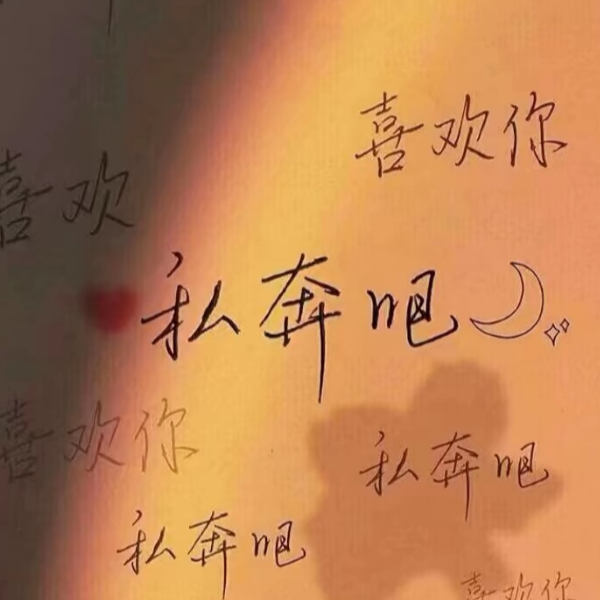 喜欢你
喜欢
私奔吧
喜欢你
私奔吧
私奔吧
喜欢你